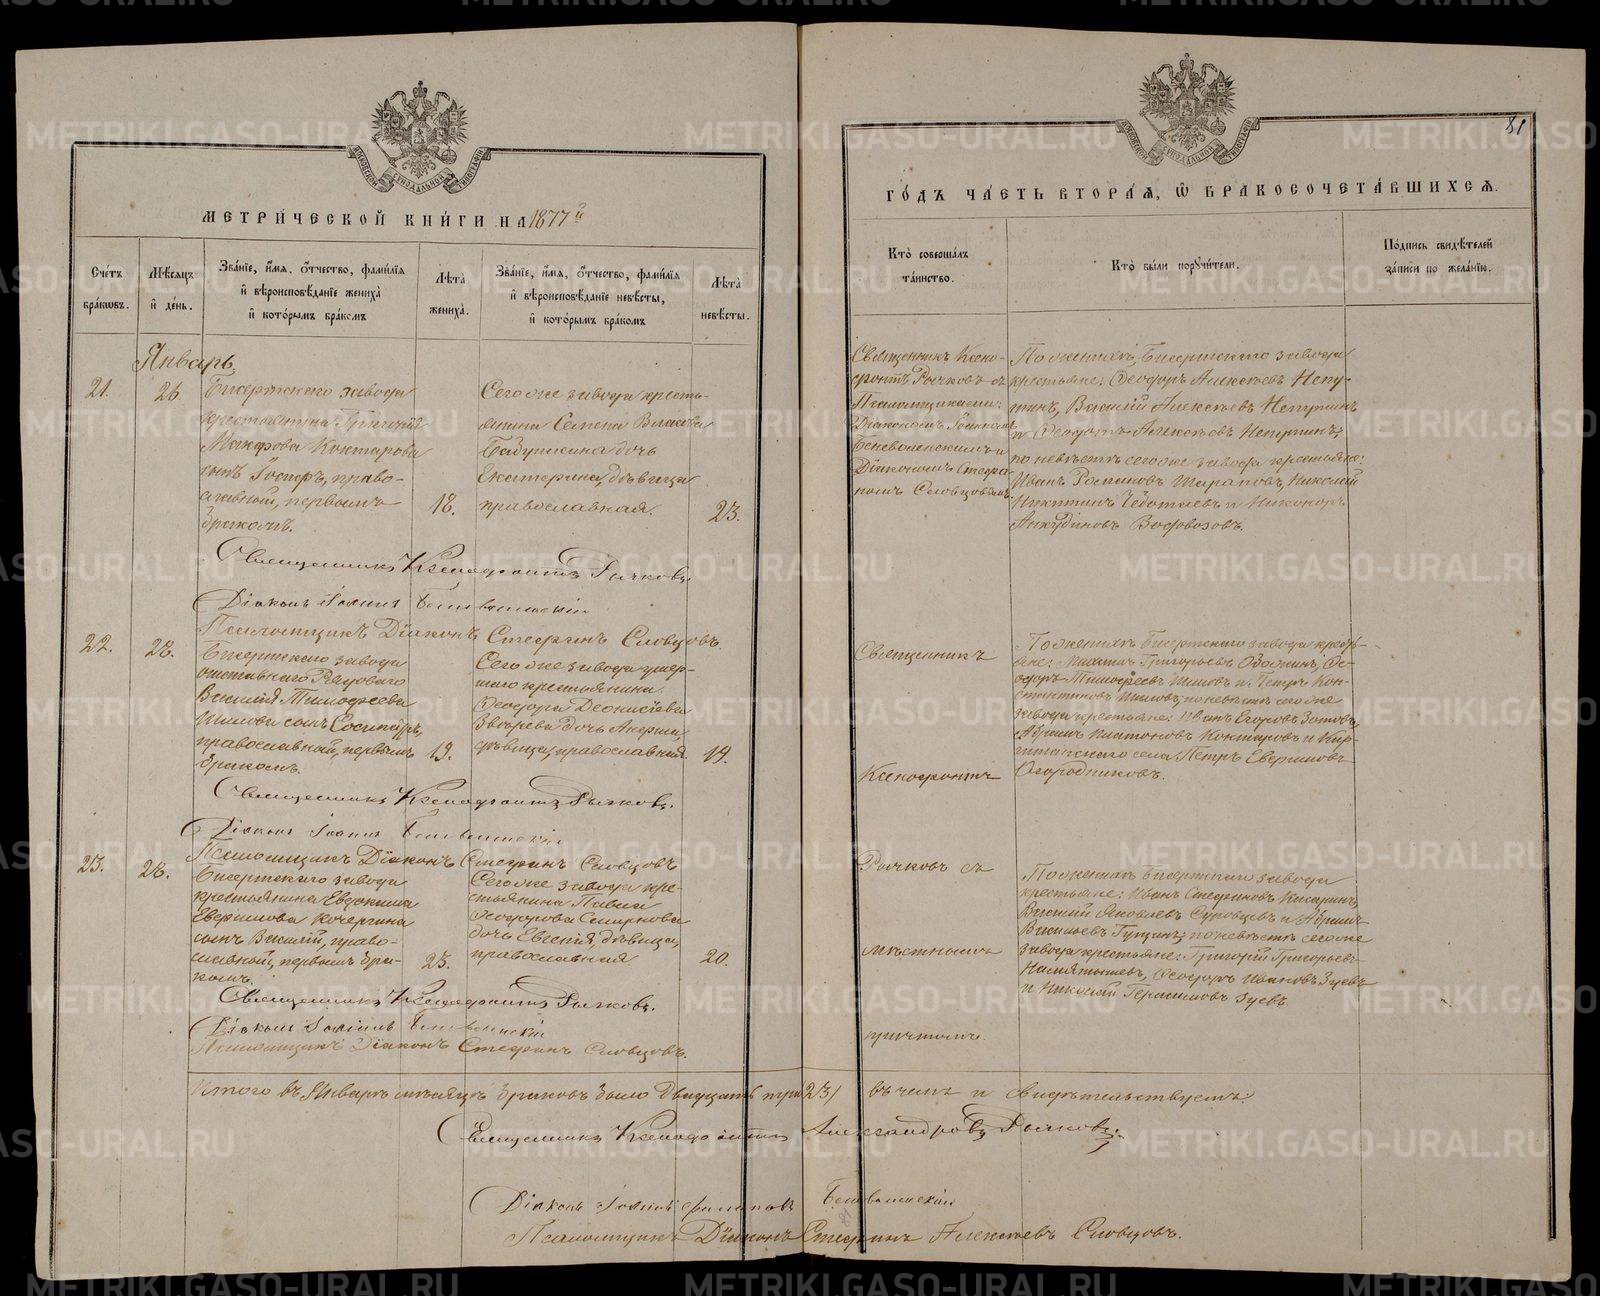 81
МЕТРИ́ЧЕСКОЙ КНИ́ГИ НА 1877й
ГО́ДЪ ЧА́СТЬ ВТОРА́Я, Ѿ БРАКОСОЧЕТА́ВШИХСЯ.
Сче́тъ бра́ковъ.
Мѣ́сяцъ и҆ де́нь.
Зва́нїе, и҆́мя, ѻ҆́тчество, фами́лїя
и҆ вѣроисповѣ́данїе жениха̀
и҆ кото́рымъ бра́комъ
Лѣ́та жениха̀.
Зва́нїе, и҆́мя, ѻ҆́тчество, фами́лїя
и҆ вѣроисповѣ́данїе невѣ́сты,
и҆ кото́рымъ бра́комъ
Лѣ́та невѣ́сты.
Кто̀ соверша́лъ
та́инство.
Кто̀ бы́ли порꙋчи́тели.
По́дпись свидѣ́телей
за́писи по жела́нїю.
Январь
21.
26.
Бисертскаго завода
крестьянина Григорія
Макарова Контарова
сынъ
право-
славный, первымъ
бракомъ.
18.
Сего же завода кресть-
янина Семена Власова
Бабушкина дочь
Екатерина, дѣвица
православная.
23.
Священникъ Ксено-
фонтъ Рычковъ съ
Псаломщиками:
Діакономъ Іоанномъ
Діакономъ Стефа-
номъ Словцовымъ
По женихѣ Бисертскаго завода
крестьяне: Ѳеодоръ Алексѣевъ Непу-
тинъ, Василій Алексѣевъ Непутинъ
и Ѳеодотъ Алексѣевъ Непутинъ;
по невѣстѣ сего же завода крестьяне:
Иванъ Романовъ Шараповъ, Николай
Никитинъ Чеботаевъ и Никаноръ
Анкудиновъ Водовозовъ.
Священникъ Ксенофонтъ Рычковъ.
Діаконъ Іоаннъ
Псаломщикъ Діаконъ Стефанъ Словцовъ.
22.
28.
Бисертскаго завода
отставнаго Рядоваго
Василія Тимофеева
Шилова сынъ Сосипатръ,
православный, первымъ
бракомъ.
19.
Сего же завода умер-
шаго крестьянина
Ѳеодора Деонисіева
Звѣрева дочь
дѣвица, православная.
19.
Священникъ
По женихѣ Бисертскаго завода кресть-
яне: Михаилъ Григорьевъ Ѳе-
одоръ Тимофеевъ Шиловъ и Петръ Кон-
стантиновъ Шиловъ; по невѣстѣ сего же
завода крестьяне: Иванъ Егоровъ Зотовъ,
Абрамъ Платоновъ Контаровъ и Кир-
гишанскаго села Петръ Евфимовъ
Огородниковъ.
Ксенофонтъ
Священникъ Ксенофонтъ Рычковъ.
Діаконъ Іоаннъ
Псаломщикъ Діаконъ Стефанъ Словцовъ
23.
28.
Бисертскаго завода
крестьянина Евдокима
Евфимова Кочергина
сынъ Василій, право-
славный, первымъ бра-
комъ.
23.
Сего же завода кре-
стьянина Павла
Ѳеодорова Смирнова
дочь Евгенія, дѣвица,
православная
20.
Рычковъ съ
По женихѣ Бисертскаго завода
крестьяне: Иванъ Стефановъ
Василій Яковлевъ Суровцевъ и Абрамъ
Васильевъ Гущинъ; по невѣстѣ сего же
завода крестьяне: Григорій Григорьевъ
Ѳеодоръ Ивановъ Зуевъ
и Николай Герасимовъ Зуевъ.
мѣстнымъ
причтомъ.
Священникъ Ксенофонтъ Рычковъ.
Діаконъ Іоаннъ
Псаломщикъ Діаконъ Стефанъ Словцовъ.
Итого въ Январѣ мѣсяцѣ браковъ было двадцать три /23/ въ чемъ и свидѣтельствуемъ:
Священникъ Ксенофонтъ Александровъ Рычковъ.
Діаконъ Іоаннъ
Псаломщикъ Діаконъ Стефанъ Алексѣевъ Словцовъ.
81
METRIKI.GASO-URAL.RU